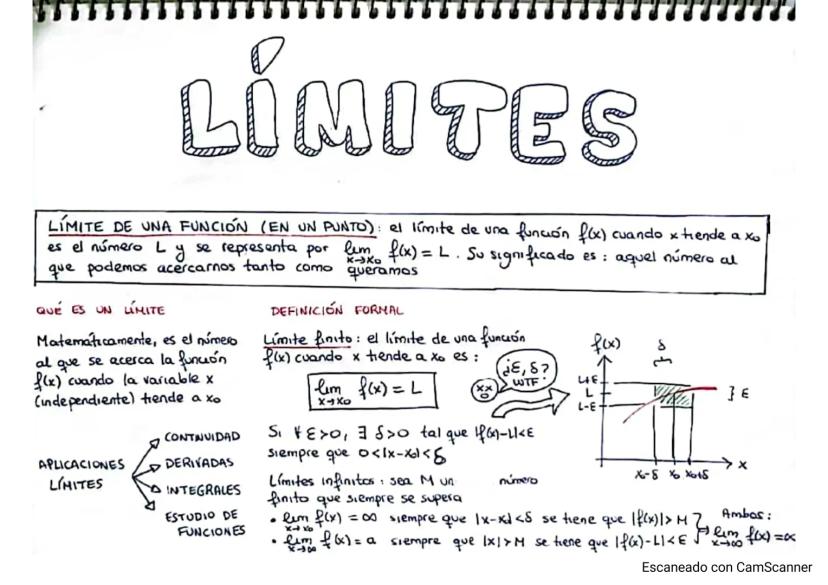 LÍMITES
LÍMITE DE UNA FUNCIÓN (EN UN PUNTO): el límite de una función f(x) cuando x tiende a x₀
es el número L y se representa por lim x→x₀ f(x) = L. Su significado es: aquel número al
que podemos acercarnos tanto como queramos
QUÉ ES UN LÍMITE
Matemáticamente, es el número
al que se acerca la función
f(x) cuando la variable x
(independiente) tiende a x₀
APLICACIONES
LÍMITES
CONTINUIDAD
DERIVADAS
INTEGRALES
ESTUDIO DE
FUNCIONES
DEFINICIÓN FORMAL
Límite finito: el límite de una función
f(x) cuando x tiende a x₀ es:
lim x→x₀ f(x) = L
¿ε, δ?
WTF!
Si ∀ε>0, ∃ δ>0 tal que |f(x)-L|<ε
siempre que 0<|x-x₀|<δ
Límites infinitos: sea M un número
finito que siempre se supera
• lim x→x₀ f(x) = ∞ siempre que |x-x₀|<δ se tiene que |f(x)|>M
• lim x→∞ f(x) = a siempre que |x|>M se tiene que |f(x)-L|<ε
Ambos:
lim x→∞ f(x)=∞
f(x)
δ
L+ε
L
L-ε
ε
x₀-δ x₀ x₀+δ
x
Escaneado con CamScanner